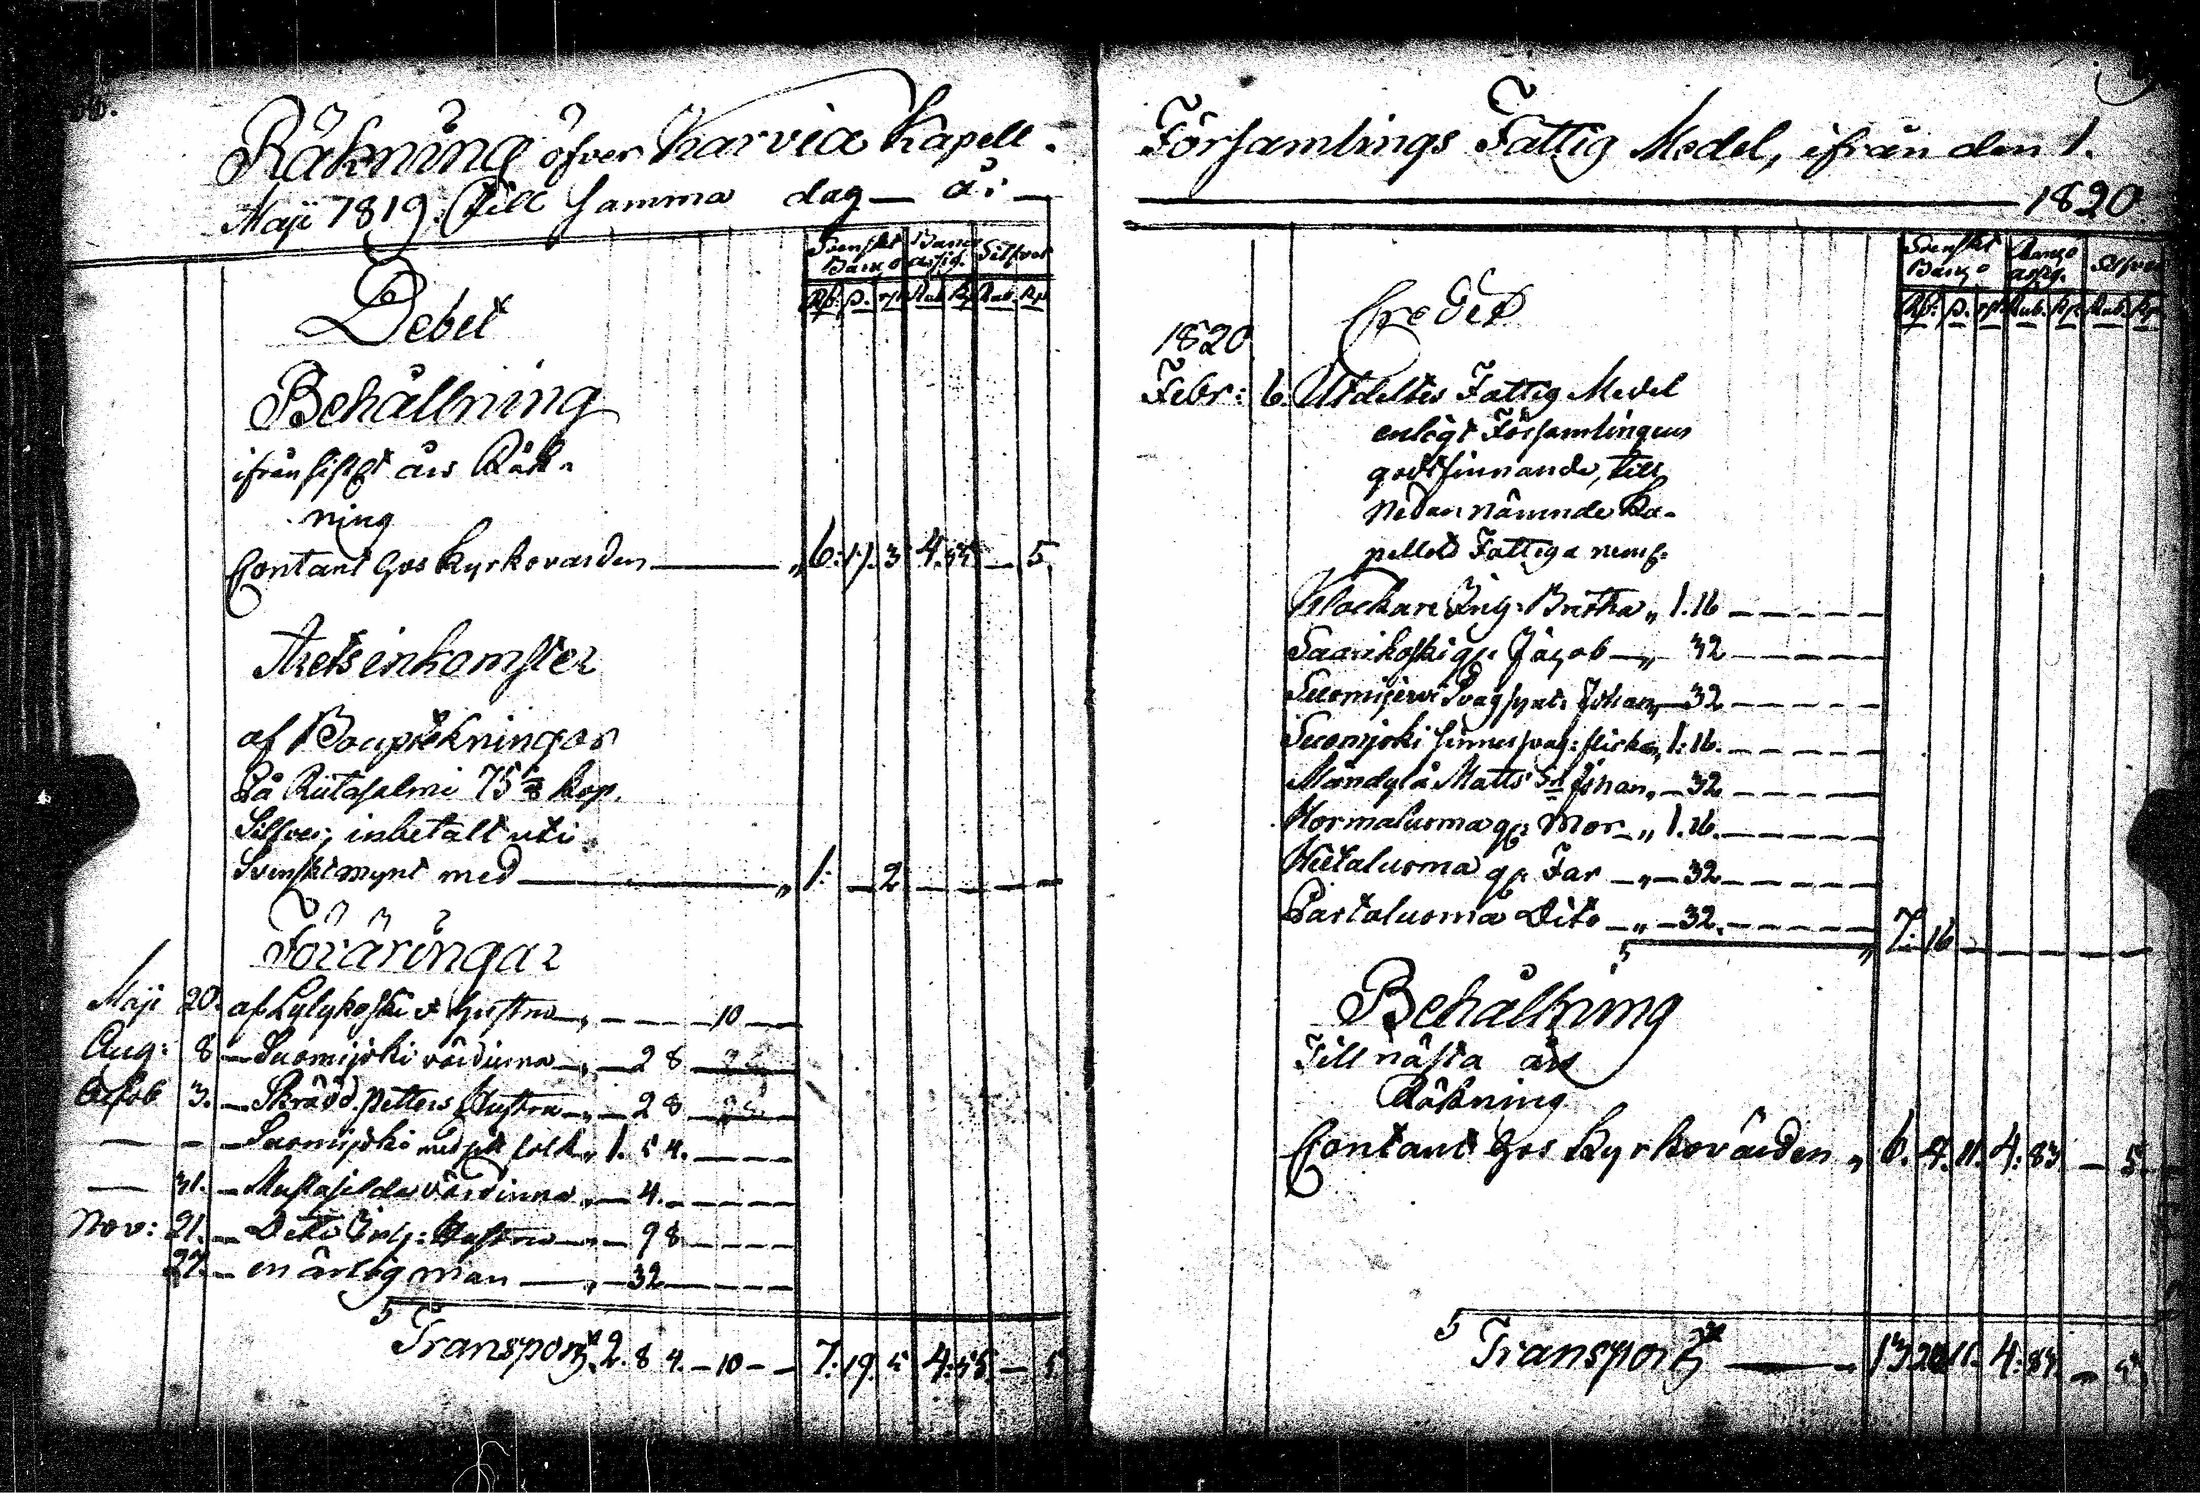 Räkning öfver Karvia Kapell-
Maji 1819. Till samma dag — år —
Svenskt Banco Banco assig. Silfver
Rd: s. rst. Rub. Kp. Rub. Kp.
Debet
Behållning
ifrån sistl. års Räk-
ning
Contant hos Kyrkovärden — " 6: 17. 3 4. 55. — 5.
Årets inkomster
af Bouptekningar
På Riitasalmi 75 kop.
Silfver, inbetalt uti
Svenskt mynt med — " 1: — 2
Föräringar
Maji 20. af Lylykoski Hustru — " — 10
Aug: 8 — Suomijoki värdinna — " — 28
3. — Skrädd. Petters Hustru — " — 28
— — — Suomijoki med sitt folk " 1. 54.
— 31. — Mustasilda värdinna " — 4.
Nov: 21. — Hustru — " — 98
27. — en ärlig man — " — 32
Transport 2. 84. — 10 — 7: 19. 5 4: 55. — 5
Församlings Fattig Medel, ifrån den 1.
1820
Svenskt Banco Banco assig. Silfver
Rd: s. rst. Rub. Kp. Rub. Kp.
Credit
1820
Febr: 6. Utdeltes Fattig Medel
enligt Församlingens
godtfinnande, till
nedannämnde Ka-
pellets Fattiga neml.
Klockare Enk: Britha " 1. 16
Saarikoski gl: Jacob — " 32
Suomijervi Johan " — 32
Suomijoki sinnessvag: flicka " 1: 16.
Mändylä Matts Sn Johan " — 32
Kormaluoma gl: Mor — " 1. 16.
Hietaluoma gl: Far — " — 32
Partaluoma Dito — " — 32.
" 7: 16
Behållning
Till nästa års
Räkning
Contant hos Kyrkovärden " 6. 4. 11. 4: 83 — 5
Transport — " 13. 20 11. 4: 83. — 5.